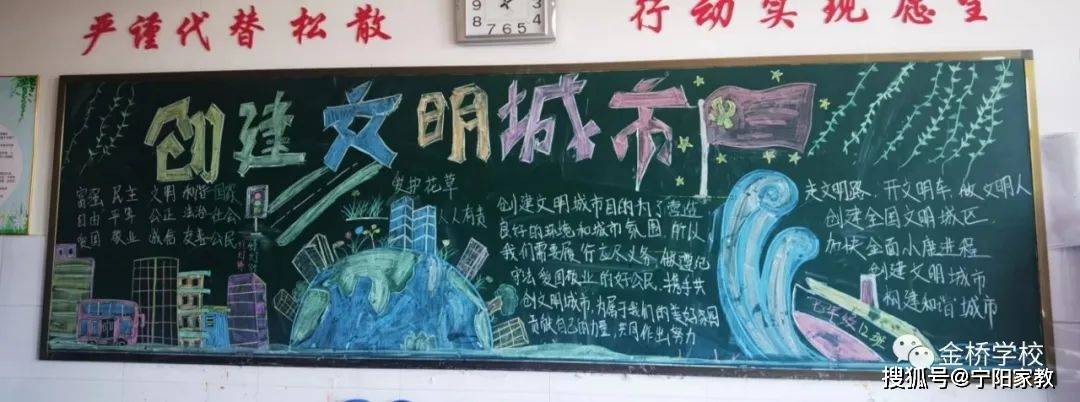 严谨代替松散
行动实现愿望
创建文明城市
富强 民主 文明 和谐 国家
自由 平等 公正 法治 社会
爱国 敬业 诚信 友善 公民
爱护花草
人人有责
创建文明城市目的为了营造
良好的环境和城市氛围,所以
我们需要履行应尽义务,做遵纪
守法爱国敬业的好公民,携手共
创文明城市,为属于我们的美好家园
贡献自己的力量,共同作出努力
走文明路、开文明车、做文明人
创建全国文明城区
加快全面小康进程
创建文明城市
构建和谐城市
七年级12班
金桥学校
搜狐号@宁阳家教